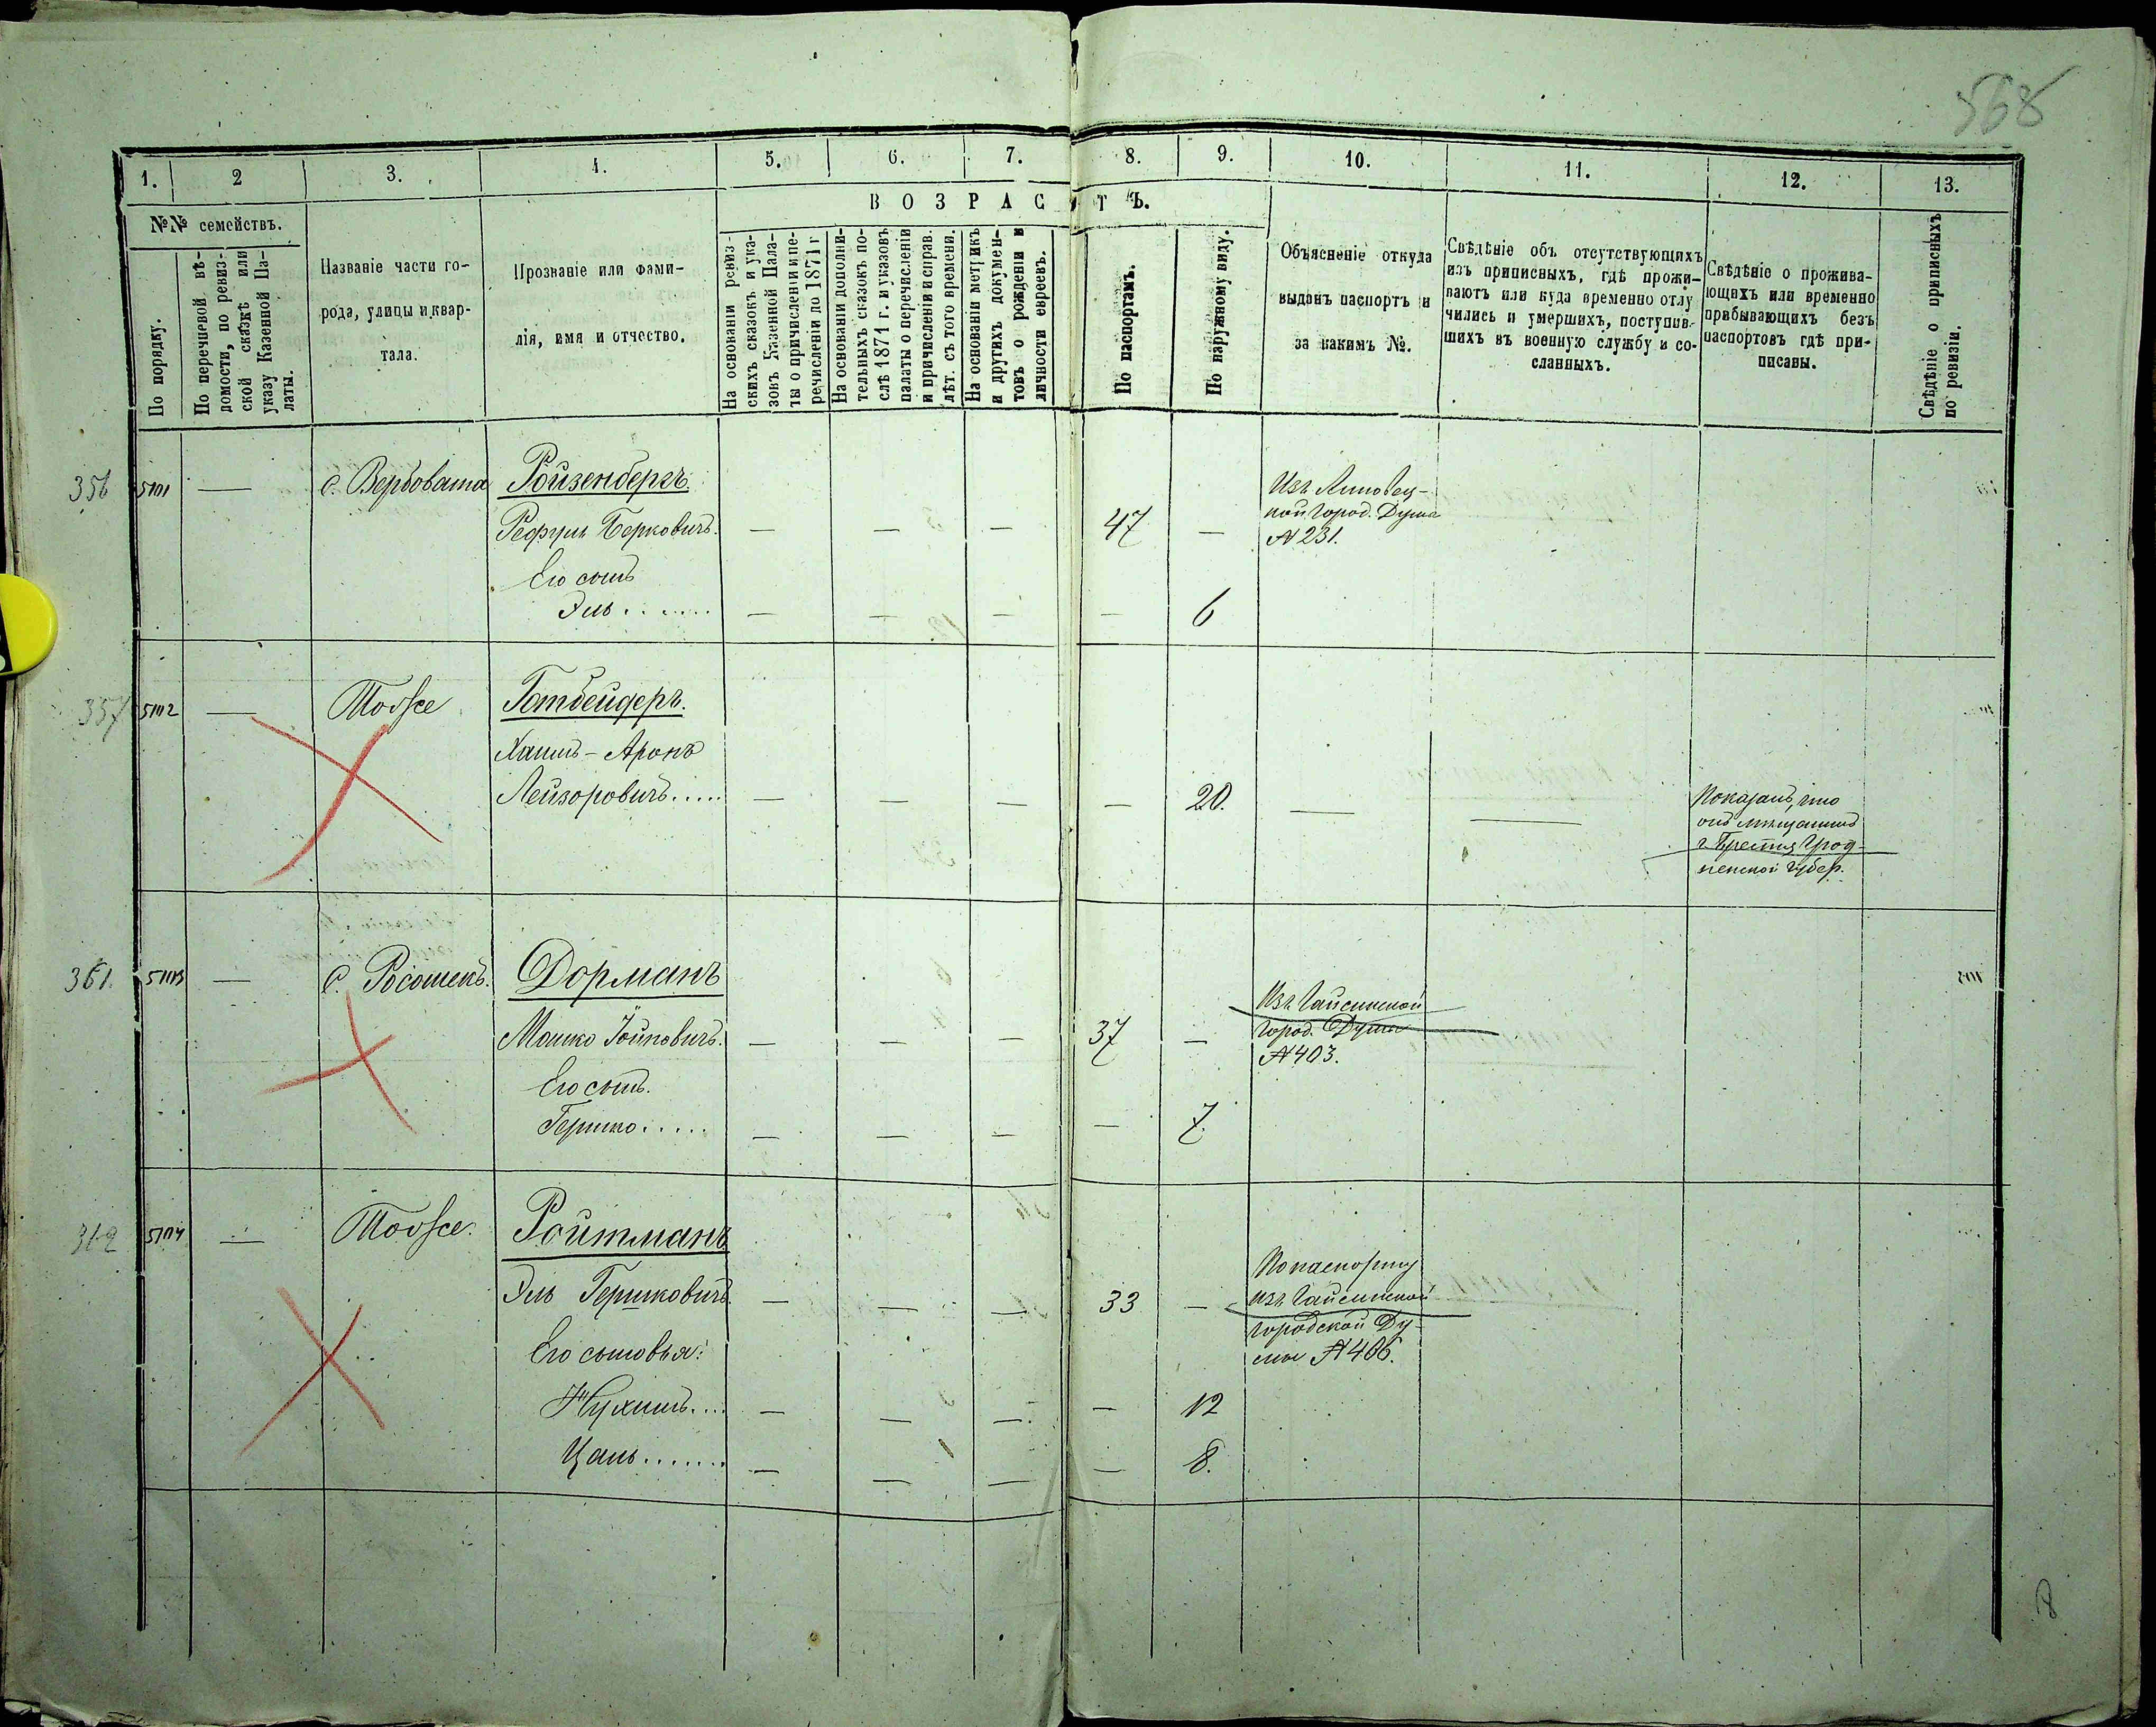 568
1. 2 3. 4. 5. 6. 7. 8. 9. 10. 11. 12. 13.
ВОЗРАСТЪ.
№№ семействъ.
По порядку.
По перечневой вѣ-
домости, по ревиз-
ской сказкѣ или
указу Казенной Па-
латы.
Названіе части го-
рода, улицы и квар-
тала.
Прозваніе или фами-
лія, имя и отчество.
На основаніи ревиз-
скихъ сказокъ и ука-
зовъ Казенной Пала-
ты о причисленіи и пе-
речисленіи до 1871 г
На основаніи дополни-
тельныхъ сказокъ по-
слѣ 1871 г. и указовъ
палаты о перечисленіи
и причисленіи и справ.
лѣт. съ того времени.
На основаніи метрикъ
и другихъ докумен-
товъ о рожденіи и
личности евреевъ.
По паспортамъ.
По наружному виду.
Объясненіе откуда
выданъ паспортъ и
за какимъ №.
Свѣдѣніе объ отсутствующихъ
изъ приписныхъ, гдѣ прожи-
ваютъ или куда временно отлу
чились и умершихъ, поступив-
шихъ въ военную службу и со-
сланныхъ.
Свѣдѣніе о прожива-
ющихъ или временно
прибывающихъ безъ
паспортовъ гдѣ при-
писаны.
Свѣдѣніе о приписныхъ
по ревизіи.
356 5101 — с. Вербовата Ройзенбергъ.
Рефулъ Берковичъ. — — — 47 —
Изъ Липовец-
кой Город. Думы
№ 231.
Его сынъ
Эль....... — — — — 6
357 5102 — Тоже Готбейдеръ.
Хаимъ-Аронъ
Лейзоровичъ..... — — — — 20. — —
Показалъ, что
онъ мѣщанинъ
г. Бреста Грод-
ненской Губер.
361. 5103 — с. Росошекъ. Дорманъ
Мошко Іойновичъ. — — — 37 —
Изъ Гайсинской
город. Думы
№ 403.
Его сынъ.
Гершко..... — — — — 7.
362 5104 — Тоже. Ройтманъ
Эль Гершковичъ. — — — 33 —
По паспорту
изъ Гайсинской
городской Ду-
мы № 406.
Его сыновья:
Нухимъ.... — — — — 12
Цаль....... — — — — 8.